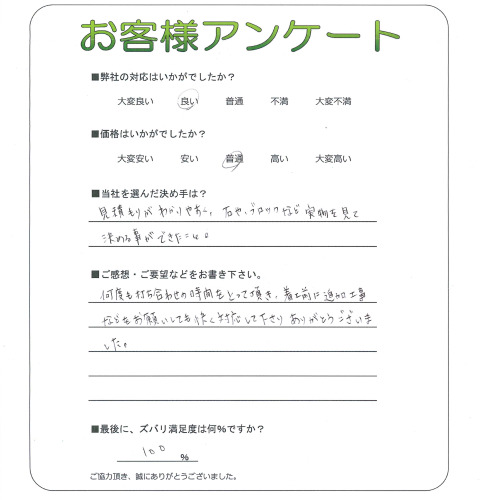 お客様アンケート
■弊社の対応はいかがでしたか？
大変良い 良い 普通 不満 大変不満
■価格はいかがでしたか？
大変安い 安い 普通 高い 大変高い
■当社を選んだ決め手は？
見積もりがわかりやすく、石や、ブロックなど実物を見て
決める事ができたこと。
■ご感想・ご要望などをお書き下さい。
何度も打ち合わせの時間をとって頂き、着工前に追加工事
などをお願いしても快く対応して下さりありがとうございま
した。
■最後に、ズバリ満足度は何％ですか？
100 %
ご協力頂き、誠にありがとうございました。